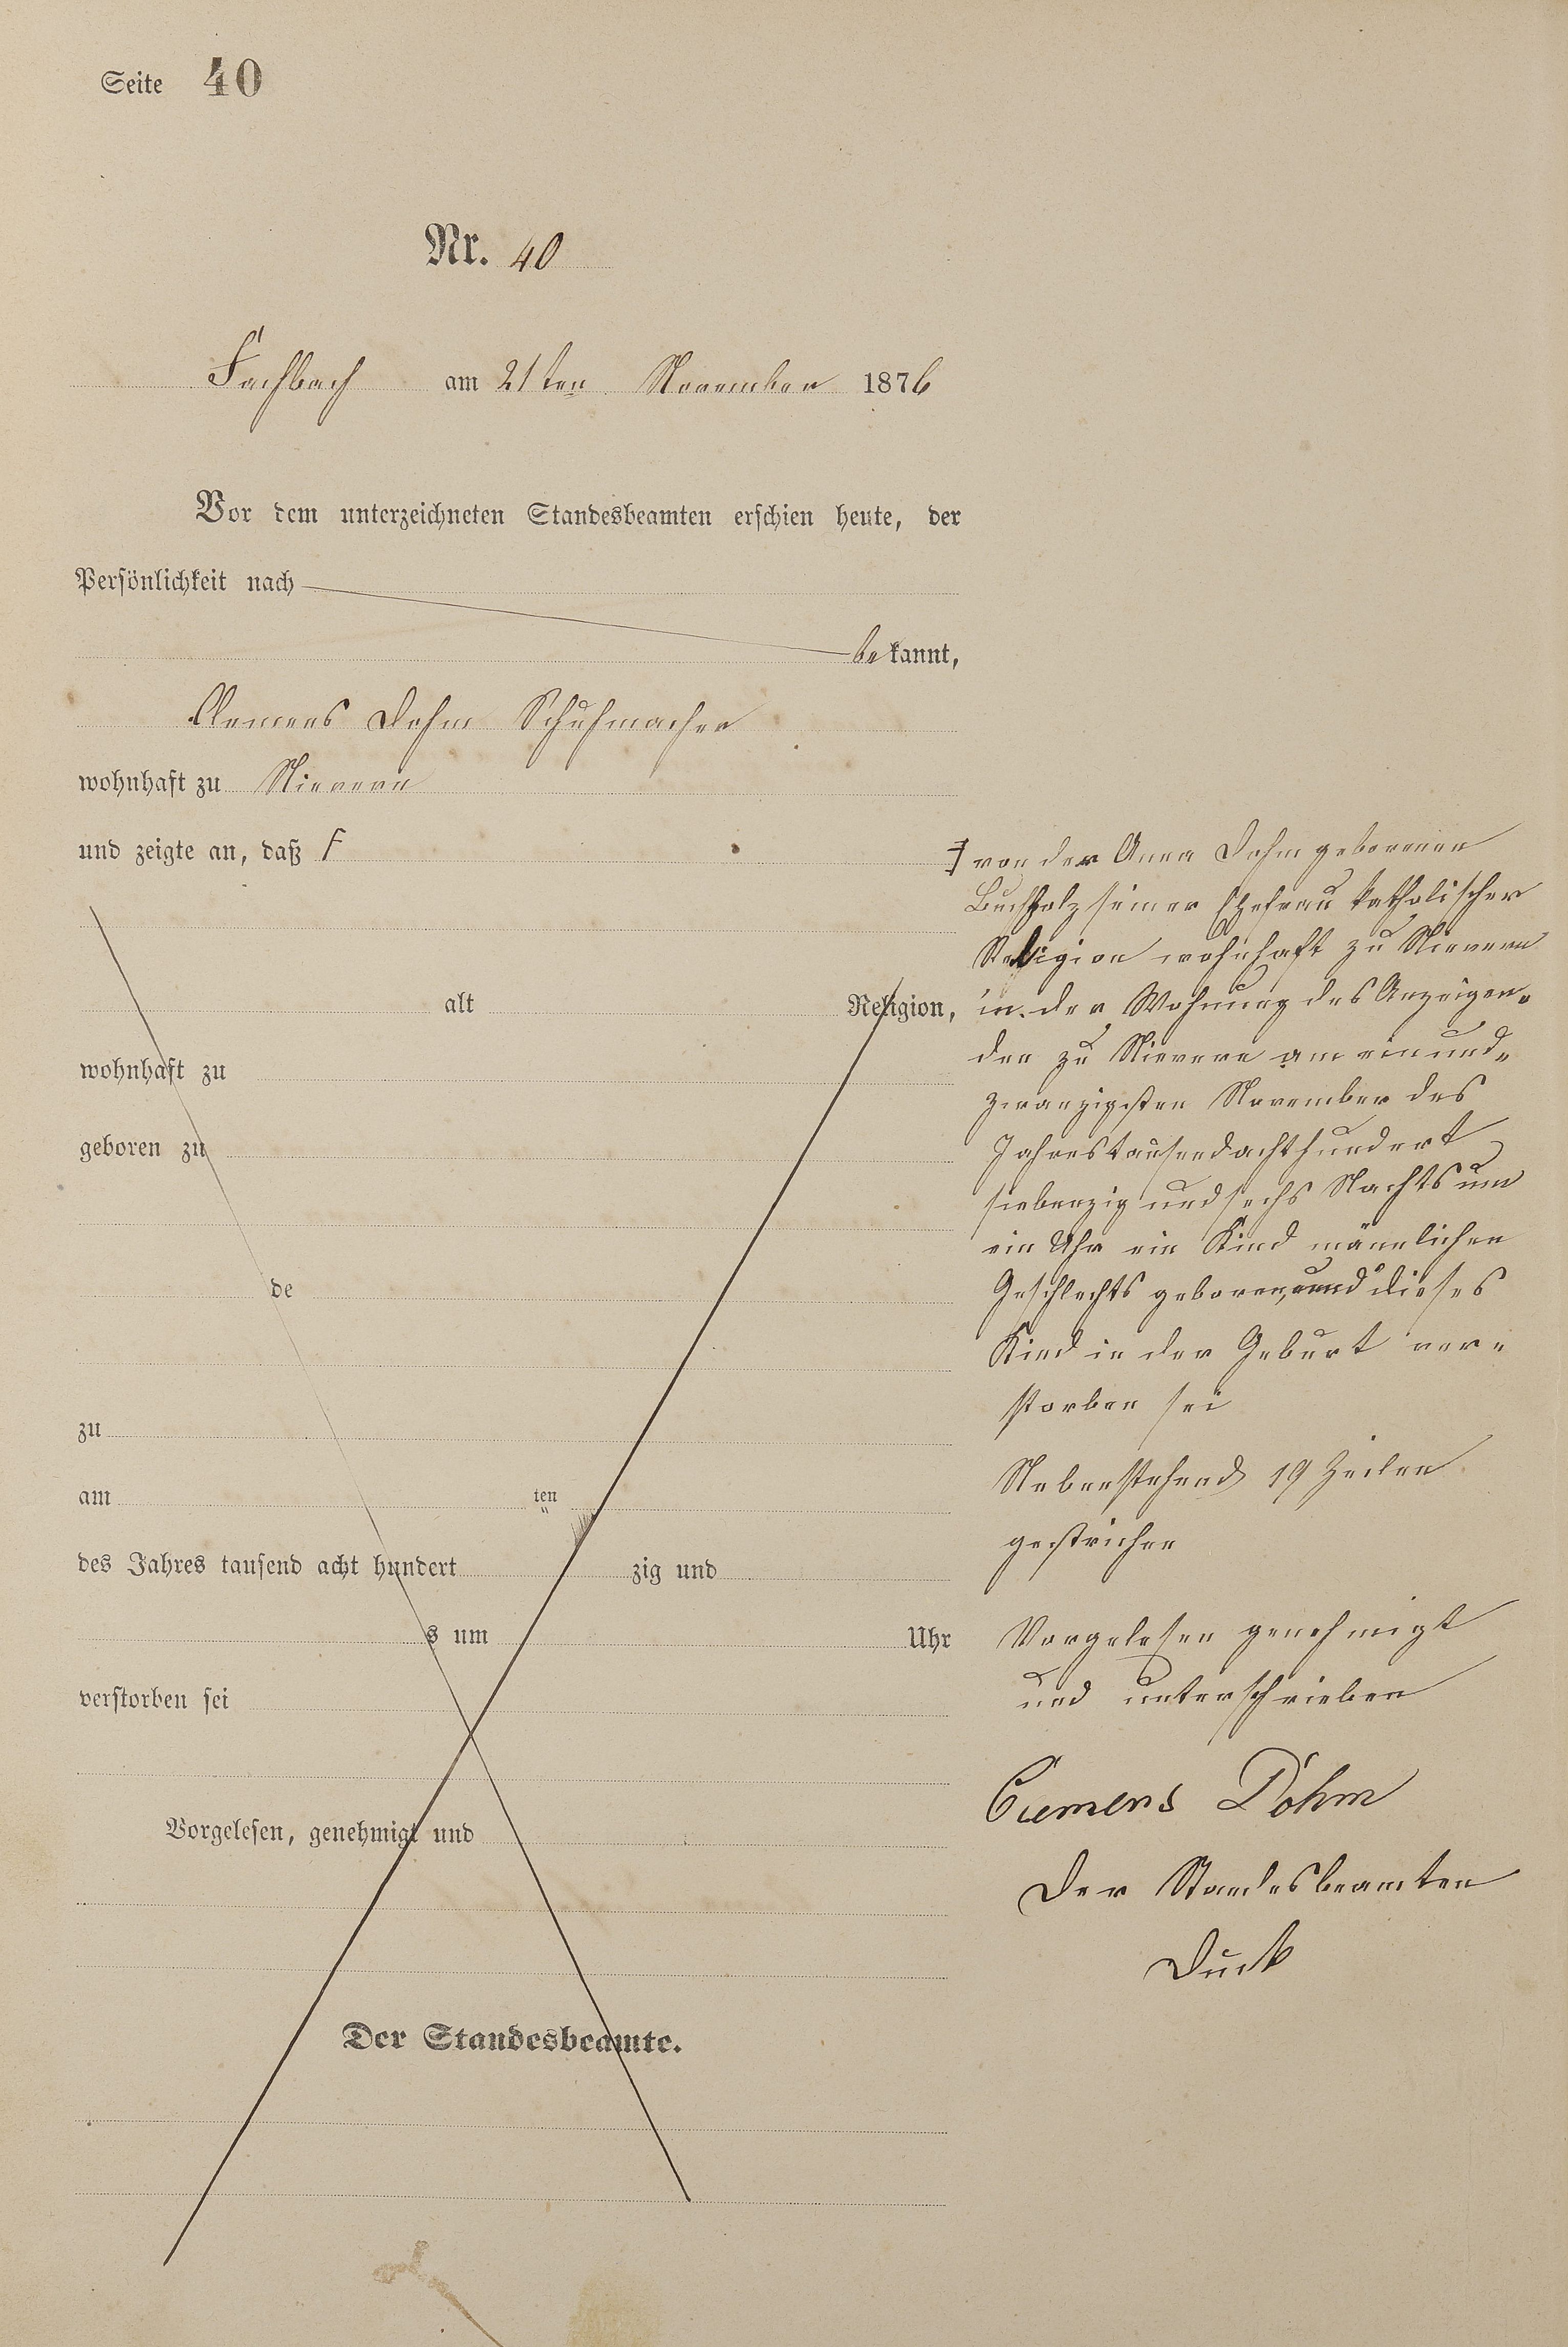 Seite 40
Nr. 40
Fachbach am 21ten November 1876
Vor dem unterzeichneten Standesbeamten erschien heute, der
Persönlichkeit nach
bekannt,
Clemens Dohm Schuhmacher
wohnhaft zu Nievern
und zeigte an, daß F
alt Religion,
wohnhaft zu
geboren zu
de
zu
am ten
des Jahres tausend acht hundert zig und
s um Uhr
verstorben sei
Vorgelesen, genehmigt und
Der Standesbeamte.
F von der Anna Dohm geborenen
Buchholz seiner Ehefrau katholischer
Religion wohnhaft zu Nievern
in der Wohnung des Anzeigen-
den zu Nievern am einund-
zwanzigsten November des
Jahres tausend achthundert
siebenzig und sechs Nachts um
ein Uhr ein Kind männlichen
Geschlechts geboren, und dieses
Kind in der Geburt ver-
storben sei
Nebenstehend 19 Zeilen
gestrichen
Vorgelesen genehmigt
und unterschrieben
Clemens Dohm
Der Standesbeamten